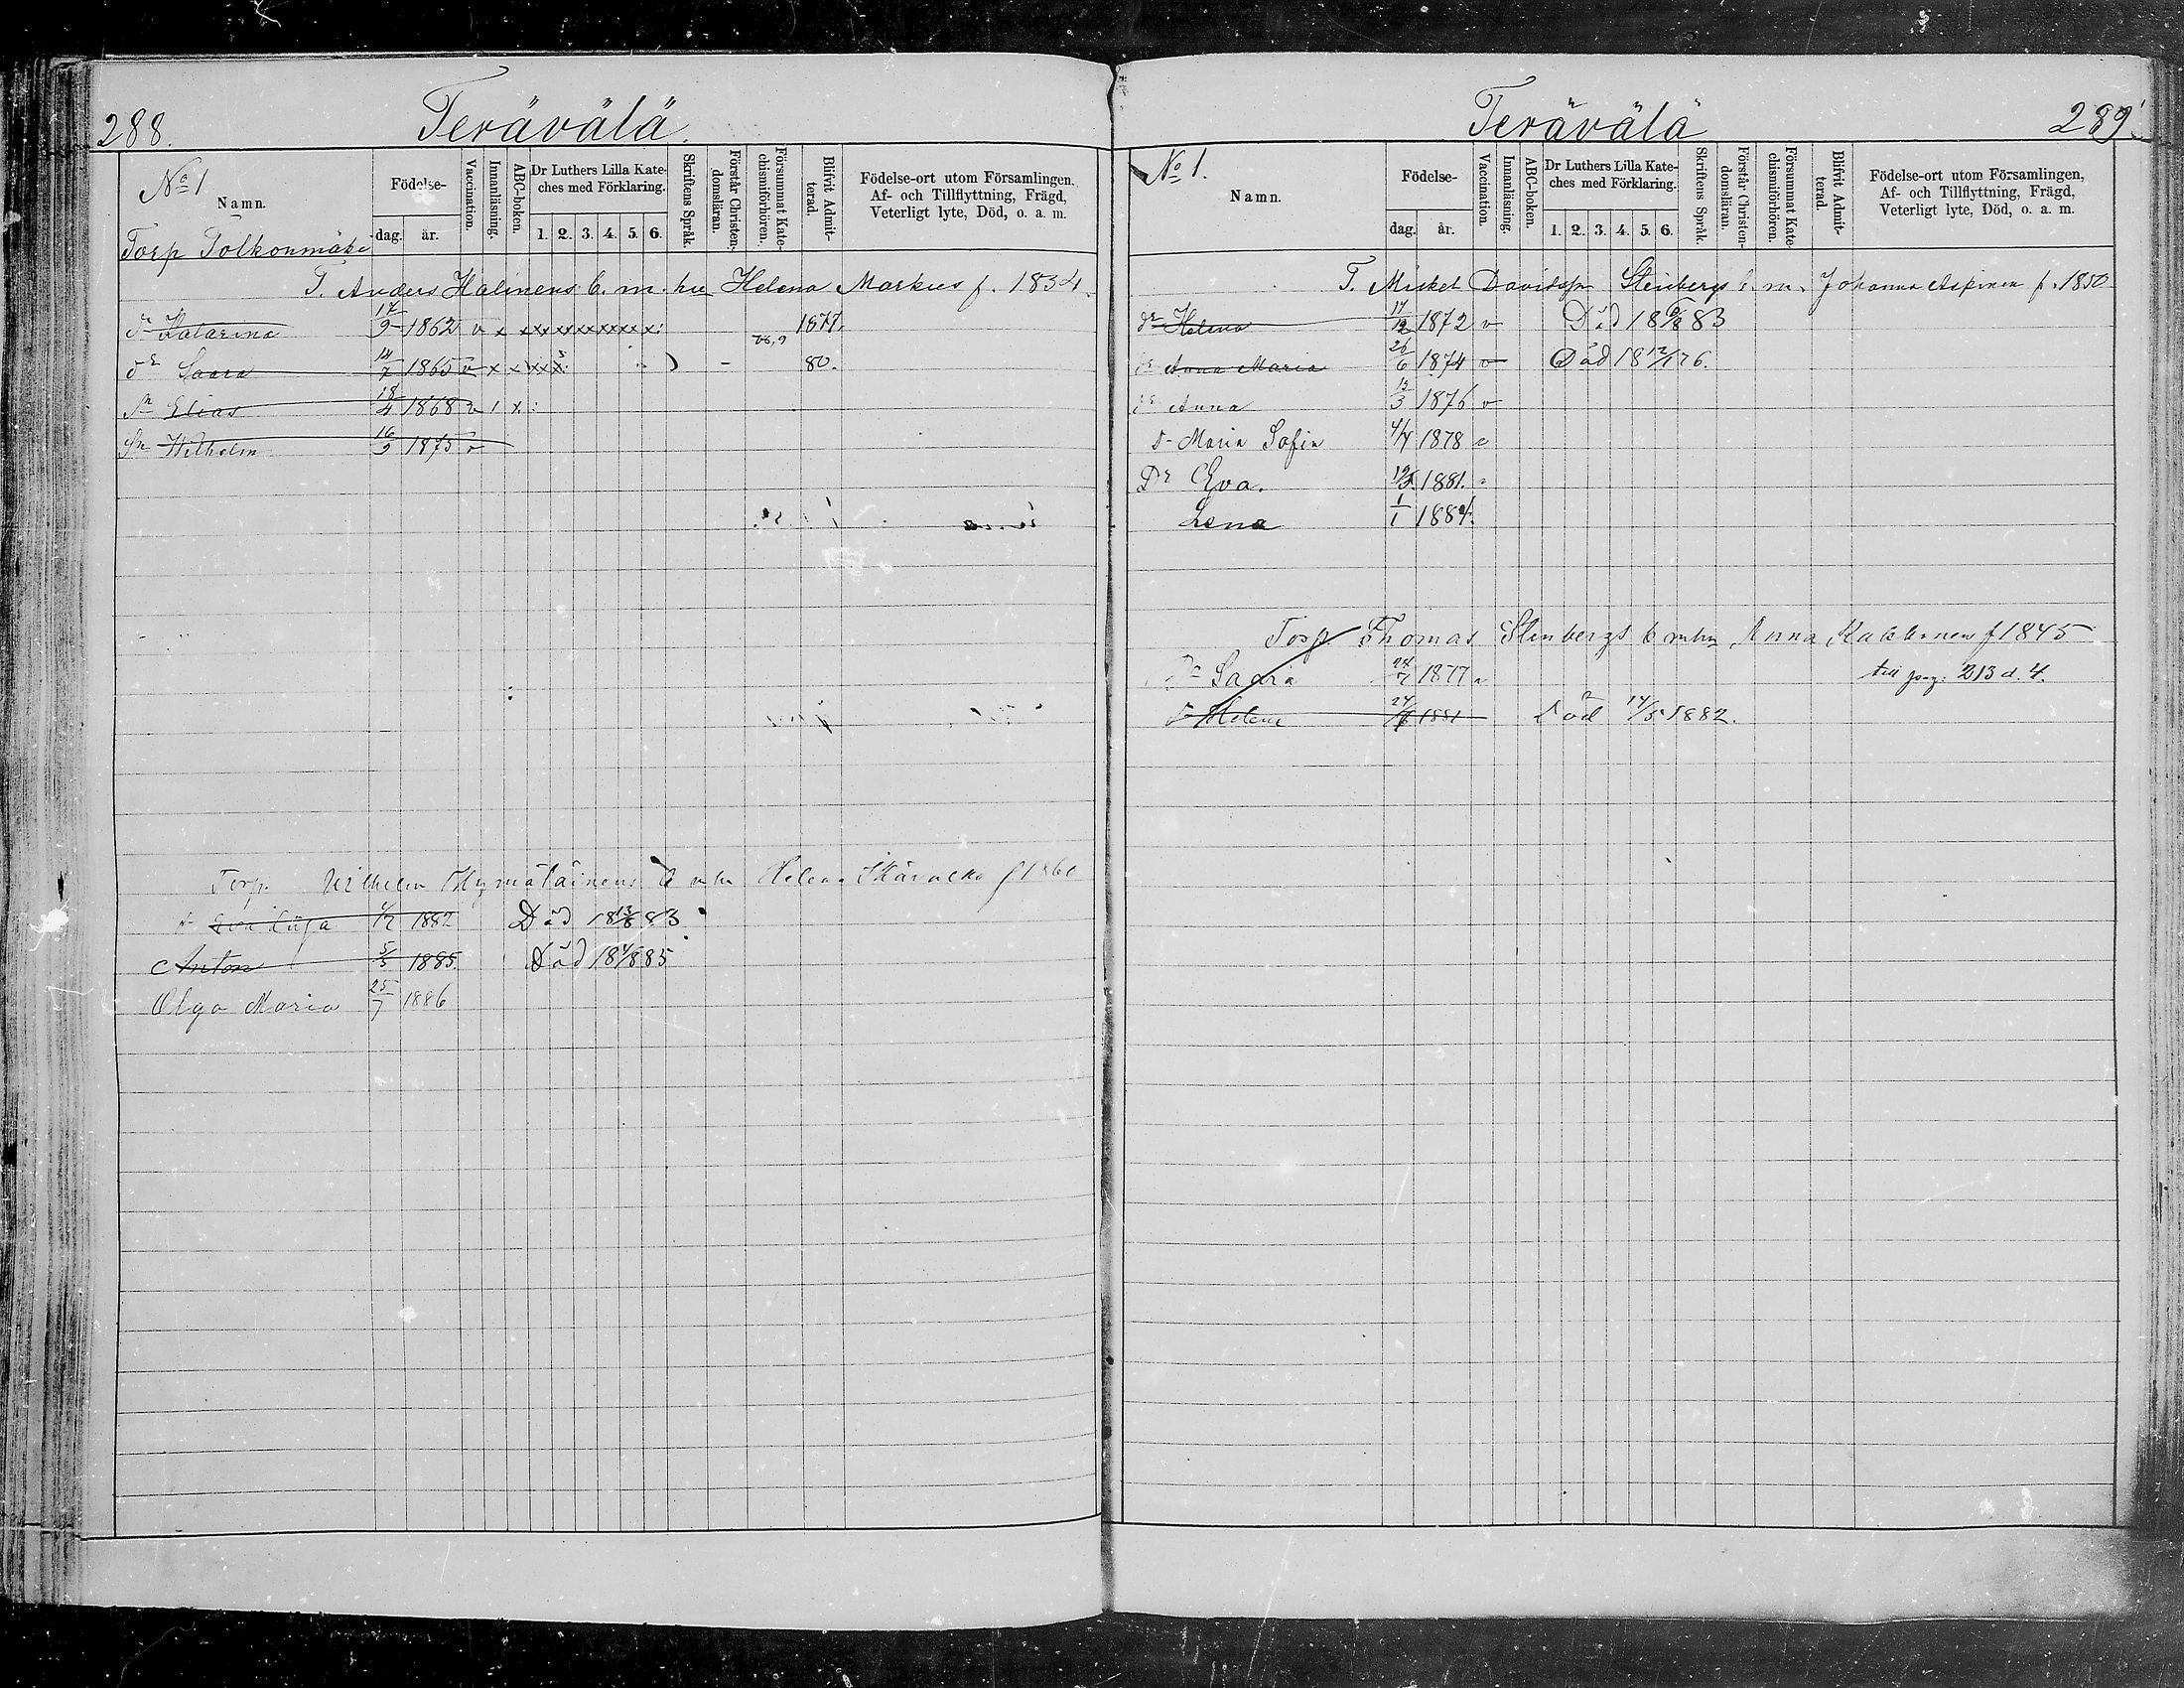 288.
Terävälä.
No 1
Namn.
Födelse-
dag.
år.
Vaccination.
Innanläsning.
ABC-boken.
Dr Luthers Lilla Kate-
ches med Förklaring.
1. 2. 3. 4. 5. 6.
Skriftens Språk.
Förstår Christen-
domsläran.
Försummat Kate-
chismiförhören.
Blifvit Admit-
terad.
Födelse-ort utom Församlingen,
Af- och Tillflyttning, Frägd,
Veterligt lyte, Död, o. a. m.
Torp Polkonmäki
T. Anders Halinens b. m. hu Helena Markus f. 1834.
dr Katarina 17/9 1862 v x x x x x x x x 1877.
dr Saara 14/7 1865 v x x x x - 80.
Sn Elias 18/4 1868 v x
Sn Wilhelm 16/9 1875 v
Torp. Wilhelm b m hu Helena f 1860
d 1/7 1882 Död 18 13/8 83
Anton 5/5 1885. Död 18 4/8 85
Olga Maria 25/7 1886
Terävälä
289.
No 1.
Namn.
Födelse-
dag.
år.
Vaccination.
Innanläsning.
ABC-boken.
Dr Luthers Lilla Kate-
ches med Förklaring.
1. 2. 3. 4. 5. 6.
Skriftens Språk.
Förstår Christen-
domsläran.
Försummat Kate-
chismiförhören.
Blifvit Admit-
terad.
Födelse-ort utom Församlingen,
Af- och Tillflyttning, Frägd,
Veterligt lyte, Död, o. a. m.
T. Mickel Davidsson Stenbergs b. m. Johanna Aspinen f. 1850
dr Helena 17/12 1872 v Död 18 6/8 83
dr Anna Maria 26/6 1874 v Död 18 12/1 76.
dr Anna 13/3 1876 v
d Maria Sofia 4/4 1878 v
Dr Eva. 1881.
Lena 1/1 1884.
Torp. Thomas Stenbergs b m hu Anna f 1845
Dr Saara 24/7 1877 v till pag: 213 d. 4.
d Helena 24/7 1881 Död 14/5 1882.